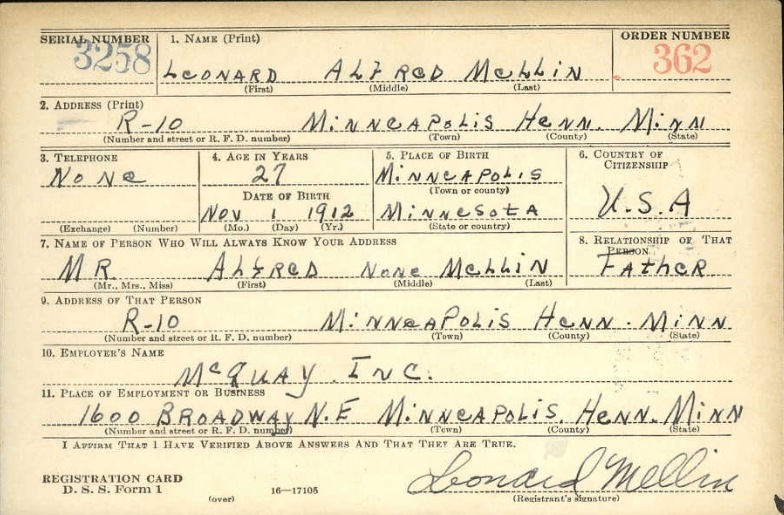 SERIAL NUMBER 1. NAME (Print) ORDER NUMBER
3258 LEONARD ALFRED MELLIN 362
(First) (Middle) (Last)
2. ADDRESS (Print)
R-10 MINNEAPOLIS HENN. MINN
(Number and street or R. F. D. number) (Town) (County) (State)
3. TELEPHONE 4. AGE IN YEARS 5. PLACE OF BIRTH 6. COUNTRY OF CITIZENSHIP
NONE 27 MINNEAPOLIS
DATE OF BIRTH (Town or county) U.S.A
NOV 1 1912 MINNESOTA
(Exchange) (Number) (Mo.) (Day) (Yr.) (State or country)
7. NAME OF PERSON WHO WILL ALWAYS KNOW YOUR ADDRESS 8. RELATIONSHIP OF THAT PERSON
MR ALFRED NONE MELLIN FATHER
(Mr., Mrs., Miss) (First) (Middle) (Last)
9. ADDRESS OF THAT PERSON
R-10 MINNEAPOLIS HENN. MINN
(Number and street or R. F. D. number) (Town) (County) (State)
10. EMPLOYER'S NAME
McQUAY INC.
11. PLACE OF EMPLOYMENT OR BUSINESS
1600 BROADWAY N.E MINNEAPOLIS. HENN. MINN
(Number and street or R. F. D. number) (Town) (County) (State)
I AFFIRM THAT I HAVE VERIFIED ABOVE ANSWERS AND THAT THEY ARE TRUE.
REGISTRATION CARD Leonard Mellin
D. S. S. Form 1 (over) 16—17105 (Registrant's signature)